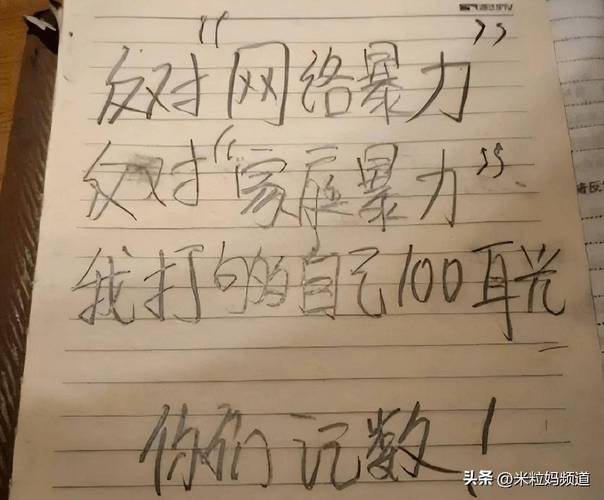 反对“网络暴力”
反对“家庭暴力”
我打够自己100耳光
你们记数！
头条 @米粒妈频道